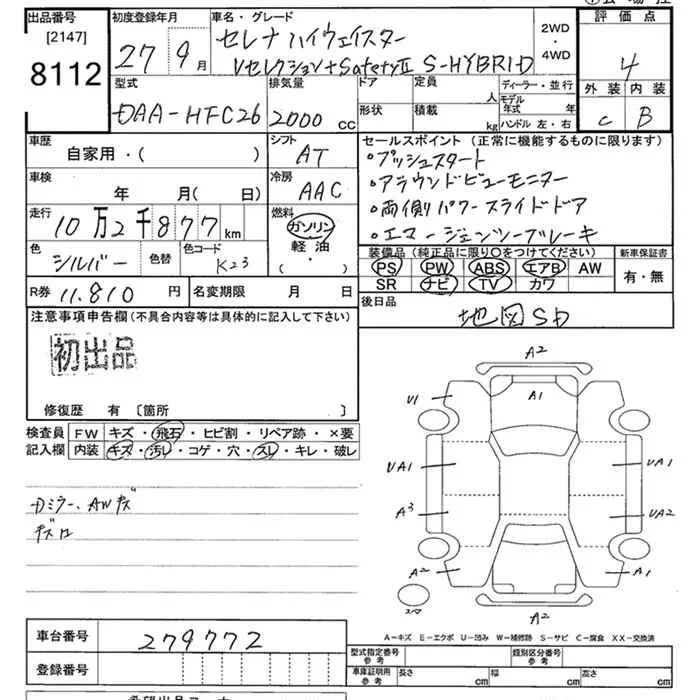 出品番号
[2147]
8112
初度登録年月
27 9月
車名・グレード
セレナ ハイウェイスター
Vセレクション+SafetyⅡ S-HYBRID
2WD
・
4WD
評価点
4
外装 内装
C B
型式
DAA-HFC26
排気量
2000 cc
ドア
形状
定員
人
積載
kg
ディーラー・並行
モデル年式 年
ハンドル 左・右
車歴
自家用・( )
シフト
AT
車検
年 月( 日)
冷房
AAC
走行
10万2千877km
燃料
ガソリン
軽油・
( )
色
シルバー
色替
色コード
K23
セールスポイント(正常に機能するものに限ります)
・プッシュスタート
・アラウンドビューモニター
・両側パワースライドドア
・エマージェンシーブレーキ
装備品(純正品に限り〇をつけてください)
PS PW ABS エアB AW
SR ナビ TV カワ
新車保証書
有・無
R券 11.810 円
名変期限 月 日
後日品
地図SD
注意事項申告欄(不具合内容等は具体的に記入して下さい)
初出品
修復歴 有 〔箇所 〕
検査員記入欄
FW キズ・飛石・ヒビ割・リペア跡・×要
内装 キズ・汚レ・コゲ・穴・スレ・キレ・破レ
Dミラー、AWキズ
キズ口
A2
U1
A1
UA1
UA1
A3
UA2
A2
A1
スペア
A2
A-キズ E-エクボ U-凹み W-補修跡 S-サビ C-腐食 XX-交換済
車台番号
279772
登録番号
型式指定番号
参考
類別区分番号
参考
車庫証明用
参考
長さ cm
幅 cm
高さ cm